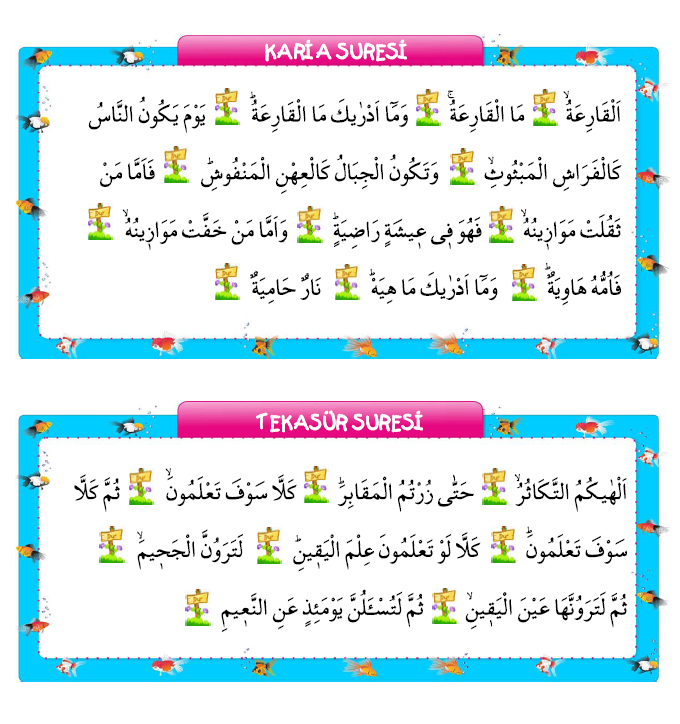 KARİA SURESİ
اَلْقَارِعَةُۙ مَا الْقَارِعَةُۚ وَمَٓا اَدْرٰيكَ مَا الْقَارِعَةُۜ يَوْمَ يَكُونُ النَّاسُ
كَالْفَرَاشِ الْمَبْثُوثِۙ وَتَكُونُ الْجِبَالُ كَالْعِهْنِ الْمَنْفُوشِۜ فَاَمَّا مَنْ
ثَقُلَتْ مَوَازٖينُهُۙ فَهُوَ فٖي عٖيشَةٍ رَاضِيَةٍۜ وَاَمَّا مَنْ خَفَّتْ مَوَازٖينُهُۙ
فَاُمُّهُ هَاوِيَةٌۜ وَمَٓا اَدْرٰيكَ مَا هِيَهْۜ نَارٌ حَامِيَةٌ
TEKASÜR SURESİ
اَلْهٰيكُمُ التَّكَاثُرُۙ حَتّٰى زُرْتُمُ الْمَقَابِرَۜ كَلَّا سَوْفَ تَعْلَمُونَۙ ثُمَّ كَلَّا
سَوْفَ تَعْلَمُونَۜ كَلَّا لَوْ تَعْلَمُونَ عِلْمَ الْيَقٖينِۜ لَتَرَوُنَّ الْجَحٖيمَۙ
ثُمَّ لَتَرَوُنَّهَا عَيْنَ الْيَقٖينِۙ ثُمَّ لَتُسْـَٔلُنَّ يَوْمَئِذٍ عَنِ النَّعٖيمِ